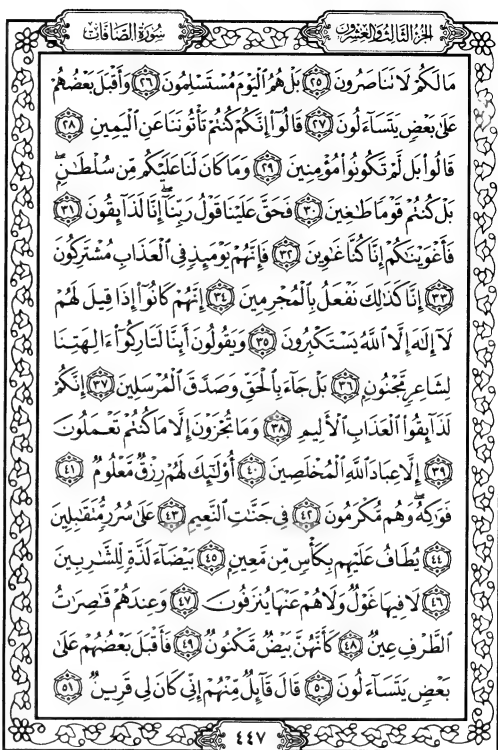 الجزء الثالث والعشرون سورة الصافات
مَا لَكُمْ لَا تَنَاصَرُونَ ٢٥ بَلْ هُمُ الْيَوْمَ مُسْتَسْلِمُونَ ٢٦ وَأَقْبَلَ بَعْضُهُمْ
عَلَىٰ بَعْضٍ يَتَسَآءَلُونَ ٢٧ قَالُوٓا۟ إِنَّكُمْ كُنتُمْ تَأْتُونَنَا عَنِ الْيَمِينِ ٢٨
قَالُوا۟ بَل لَّمْ تَكُونُوا۟ مُؤْمِنِينَ ٢٩ وَمَا كَانَ لَنَا عَلَيْكُم مِّن سُلْطَٰنٍۭ ۖ
بَلْ كُنتُمْ قَوْمًا طَٰغِينَ ٣٠ فَحَقَّ عَلَيْنَا قَوْلُ رَبِّنَآ ۖ إِنَّا لَذَآئِقُونَ ٣١
فَأَغْوَيْنَٰكُمْ إِنَّا كُنَّا غَٰوِينَ ٣٢ فَإِنَّهُمْ يَوْمَئِذٍ فِى الْعَذَابِ مُشْتَرِكُونَ
٣٣ إِنَّا كَذَٰلِكَ نَفْعَلُ بِالْمُجْرِمِينَ ٣٤ إِنَّهُمْ كَانُوٓا۟ إِذَا قِيلَ لَهُمْ
لَآ إِلَٰهَ إِلَّا اللَّهُ يَسْتَكْبِرُونَ ٣٥ وَيَقُولُونَ أَئِنَّا لَتَارِكُوٓا۟ ءَالِهَتِنَا
لِشَاعِرٍ مَّجْنُونٍۭ ٣٦ بَلْ جَآءَ بِالْحَقِّ وَصَدَّقَ الْمُرْسَلِينَ ٣٧ إِنَّكُمْ
لَذَآئِقُوا۟ الْعَذَابِ الْأَلِيمِ ٣٨ وَمَا تُجْزَوْنَ إِلَّا مَا كُنتُمْ تَعْمَلُونَ
٣٩ إِلَّا عِبَادَ اللَّهِ الْمُخْلَصِينَ ٤٠ أُو۟لَٰٓئِكَ لَهُمْ رِزْقٌ مَّعْلُومٌ ٤١
فَوَٰكِهُ ۖ وَهُم مُّكْرَمُونَ ٤٢ فِى جَنَّٰتِ النَّعِيمِ ٤٣ عَلَىٰ سُرُرٍ مُّتَقَٰبِلِينَ
٤٤ يُطَافُ عَلَيْهِم بِكَأْسٍ مِّن مَّعِينٍۭ ٤٥ بَيْضَآءَ لَذَّةٍ لِّلشَّٰرِبِينَ
٤٦ لَا فِيهَا غَوْلٌ وَلَا هُمْ عَنْهَا يُنزَفُونَ ٤٧ وَعِندَهُمْ قَٰصِرَٰتُ
الطَّرْفِ عِينٌ ٤٨ كَأَنَّهُنَّ بَيْضٌ مَّكْنُونٌ ٤٩ فَأَقْبَلَ بَعْضُهُمْ عَلَىٰ
بَعْضٍ يَتَسَآءَلُونَ ٥٠ قَالَ قَآئِلٌ مِّنْهُمْ إِنِّى كَانَ لِى قَرِينٌ ٥١
٤٤٧